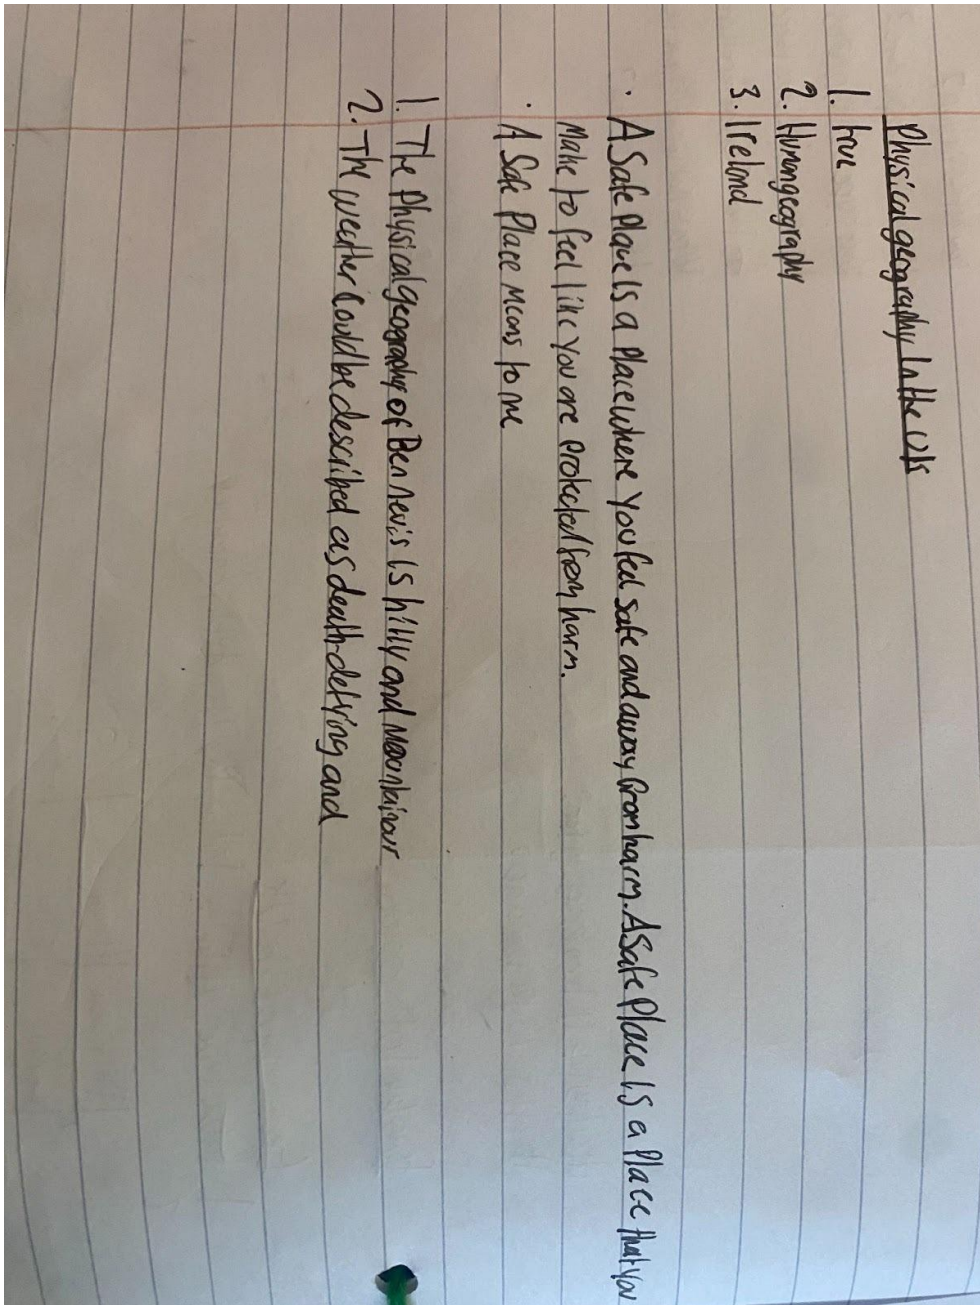 Physical geography In the Uk
1. true
2. Human geography
3. Ireland
· A Safe Place Is a Place where You feel safe and away from harm. A Safe Place Is a Place that you
Make to feel like You are protected from harm.
· A Safe Place Means to me
1. The Physical geography of Ben nevis is hilly and Mountainour
2. The weather Could be described as death-defying and